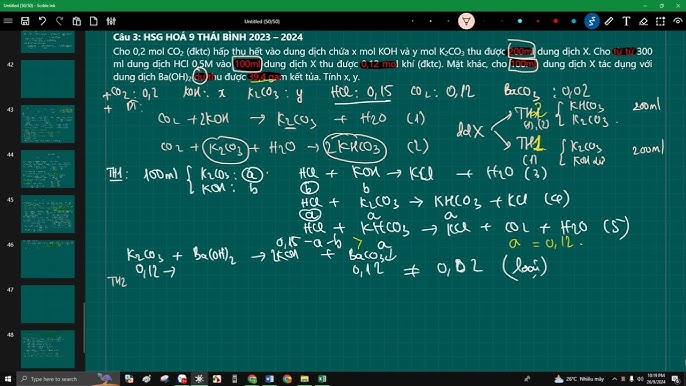 Untitled (50/50) - Scrble Ink
Untitled (50/50)
Câu 3: HSG HOÁ 9 THÁI BÌNH 2023 – 2024
Cho 0,2 mol CO₂ (đktc) hấp thụ hết vào dung dịch chứa x mol KOH và y mol K₂CO₃ thu được 200ml dung dịch X. Cho từ từ 300
ml dung dịch HCl 0,5M vào 100ml dung dịch X thu được 0,12 mol khí (đktc). Mặt khác, cho 100ml dung dịch X tác dụng với
dung dịch Ba(OH)₂ thu được gam kết tủa. Tính x, y.
+ CO₂ : 0,2 KOH : x K₂CO₃ : y HCl : 0,15 CO₂ : 0,12 BaCO₃ : 0,02
+ CO₂ + 2KOH → K₂CO₃ + H₂O (1)
CO₂ + K₂CO₃ + H₂O → 2KHCO₃ (2)
ddX
TH2 (1),(2) { KHCO₃ K₂CO₃ 200ml
TH1 (1) { K₂CO₃ KOH dư 200ml
TH1: 100ml { K₂CO₃ : a KOH : b
HCl + KOH → KCl + H₂O (3)
b b
HCl + K₂CO₃ → KHCO₃ + KCl (4)
a a a
HCl + KHCO₃ → KCl + CO₂ + H₂O (5)
0,15-a-b > a a = 0,12.
K₂CO₃ + Ba(OH)₂ → 2KOH + BaCO₃↓
0,12 → 0,12 ≠ 0,02 (loại)
TH2
42
43
44
45
46
47
48
Type here to search
26°C Nhiều mây
10:19 PM
26/9/2024